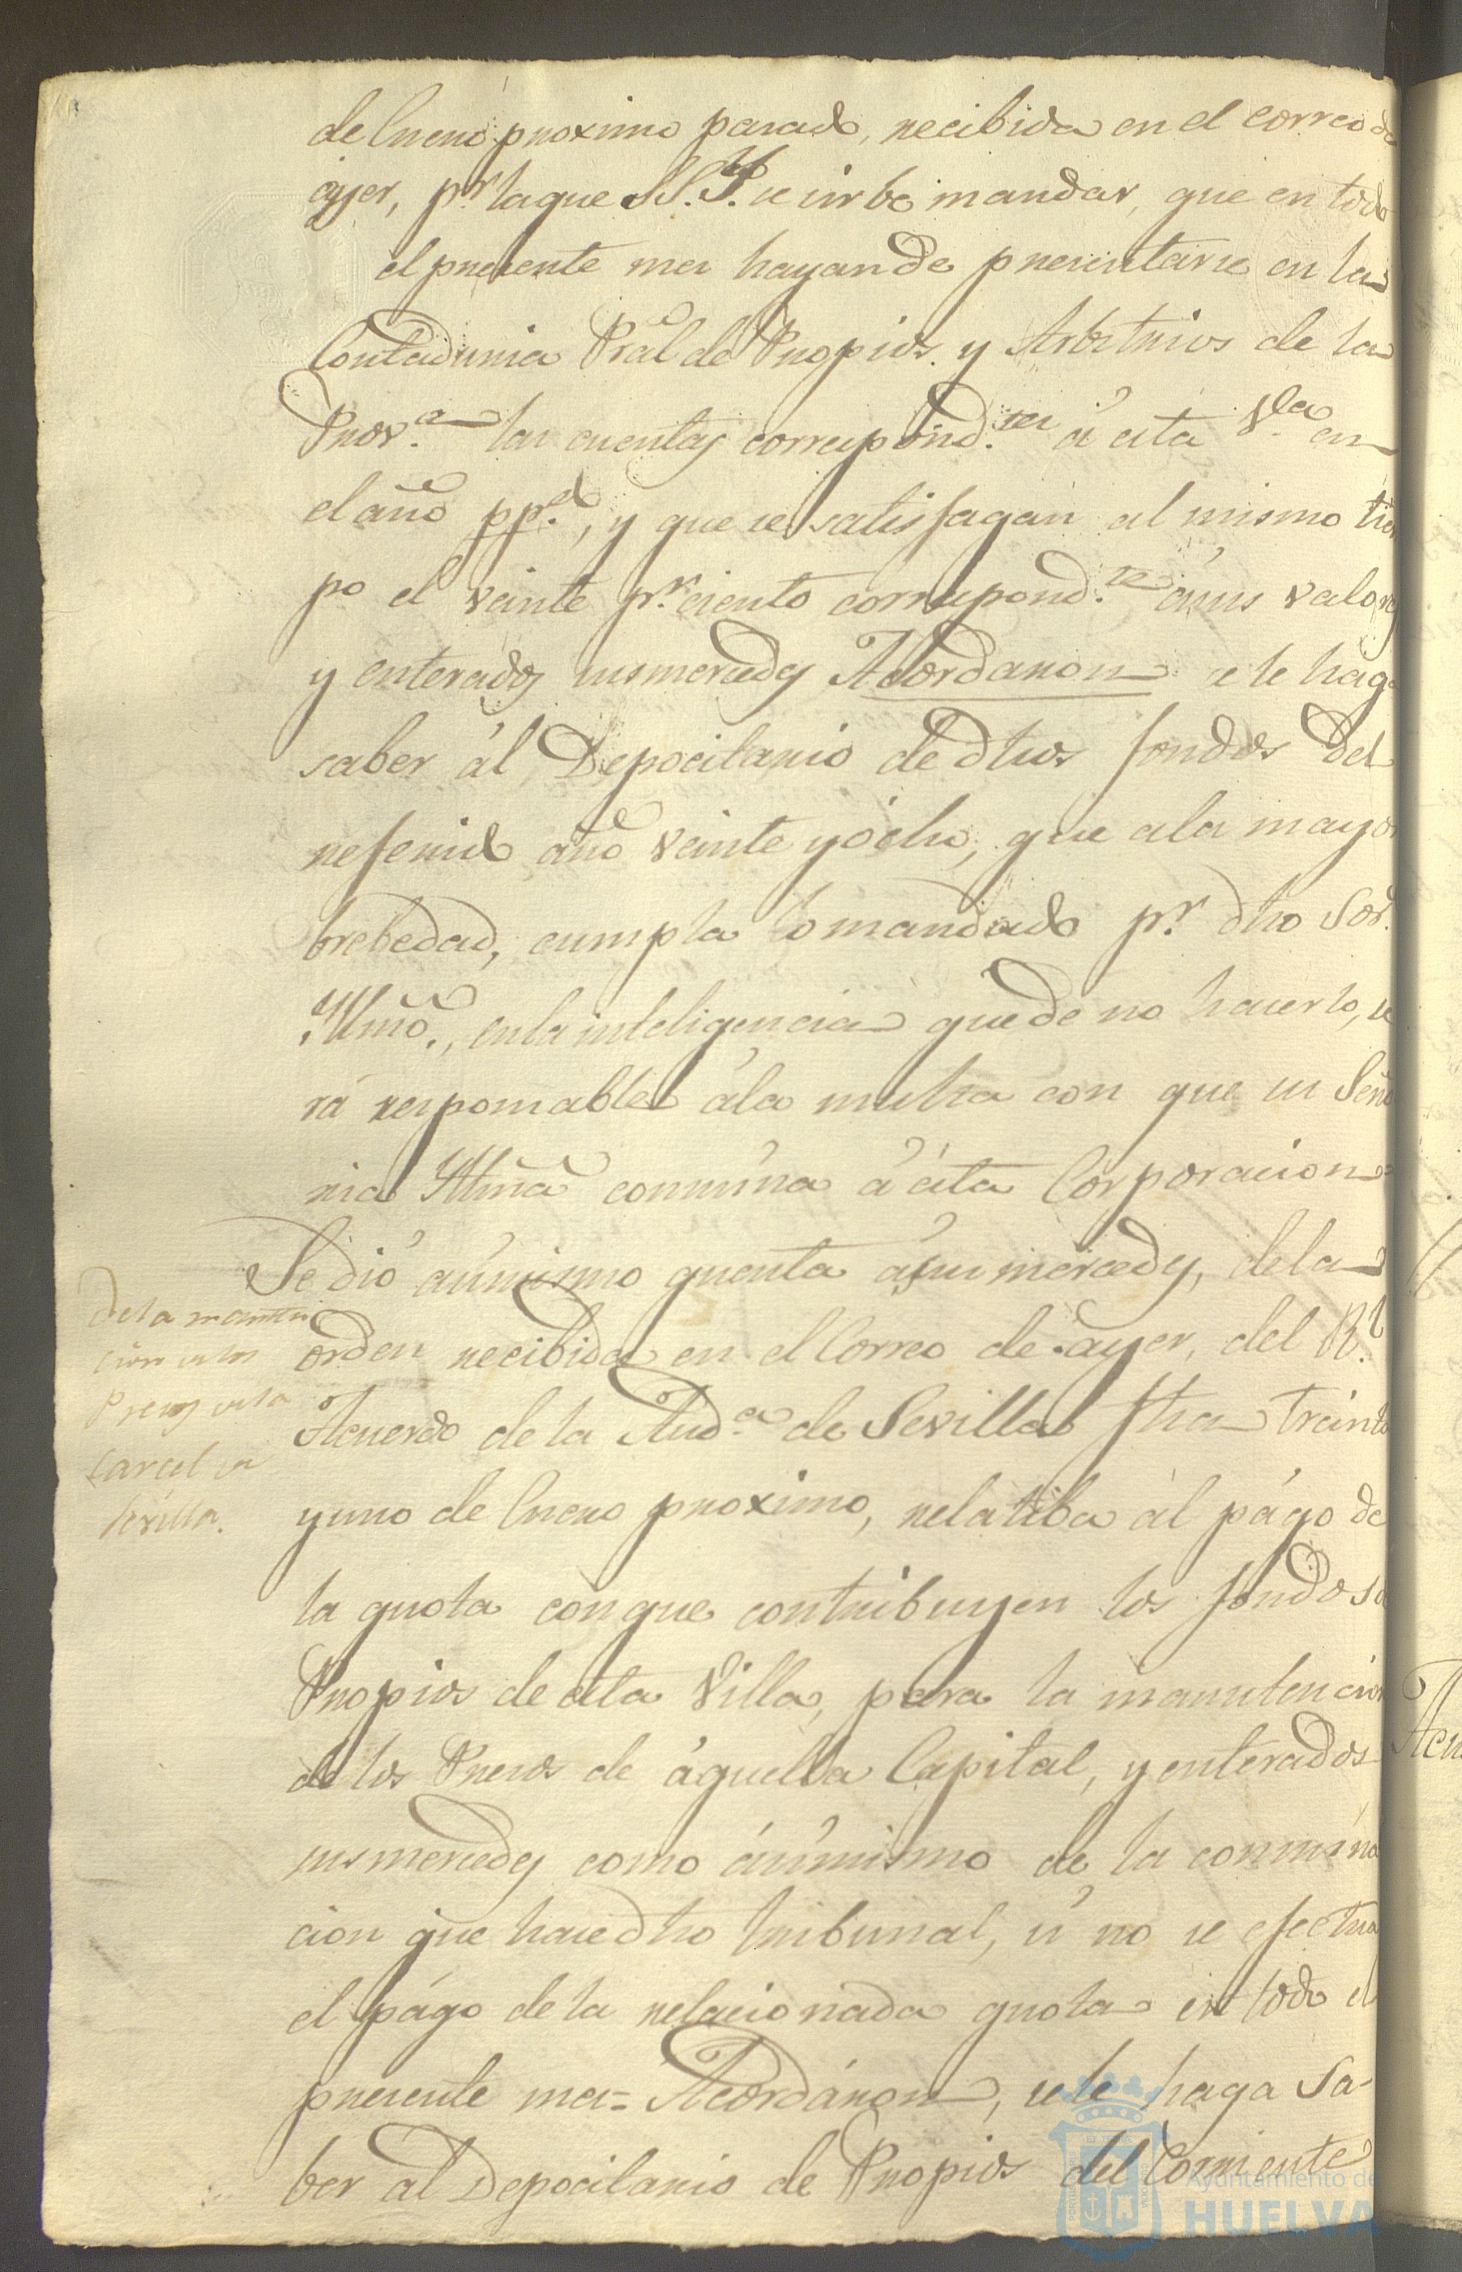 de Enero proximo pasado, recibida en el correo de
ayer, p.r la que S.S.Y. se sirbe mandar, que en todo
el presente mes hayan de presentarse en la
Contaduria Pral de Propios y Arbitrios de la
Prov.a las cuentas correspond.tes á esta V.lla en
el año pp.do, y que se satisfagan al mismo tiem
po el veinte p.r ciento correspond.te á sus valores
y enterados sus mercedes Acordaron se le haga
saber ál Depocitario de dhos fondos del
referido año veinte y ócho, que a la mayor
brebedad, cumpla lo mandado p.r dho Sor.
Yllmo., en la inteligencia que de no hacerlo, se
rá responsable á la multa con que su Seño
ria Yllmã conmina á esta Corporacion=
Se dió ásimismo quenta á sus mercedes, de la
orden recibida en el Correo de ayer, del R.l
Acuerdo de la Aud.a de Sevilla fha treinta
y uno de Enero proximo, relatiba ál págo de
la quota con que contribuyen los fondos de
Propios de esta Villa, para la manutencion
de los Presos de áquella Capital, y enterados
sus mercedes como ásimismo de la conmina
cion que hace dho tribunal, si no se efectua
el págo de la relacionada quota en todo el
presente mes= Acordáron, se le haga sa-
ber al Depocitario de Propios del Corriente
De la manten
cion de los
Presos de la
Carcel de
Sevilla.
Acu
Ayuntamiento de
HUELVA